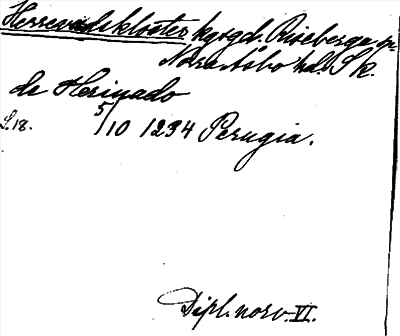 Herrevadskloster kgsgd. Riseberga sn.
Norra Åsbo hd. Sk.
de Herivado
S. 18. 5/10 1234 Perugia.
Dipl. norv. VI.